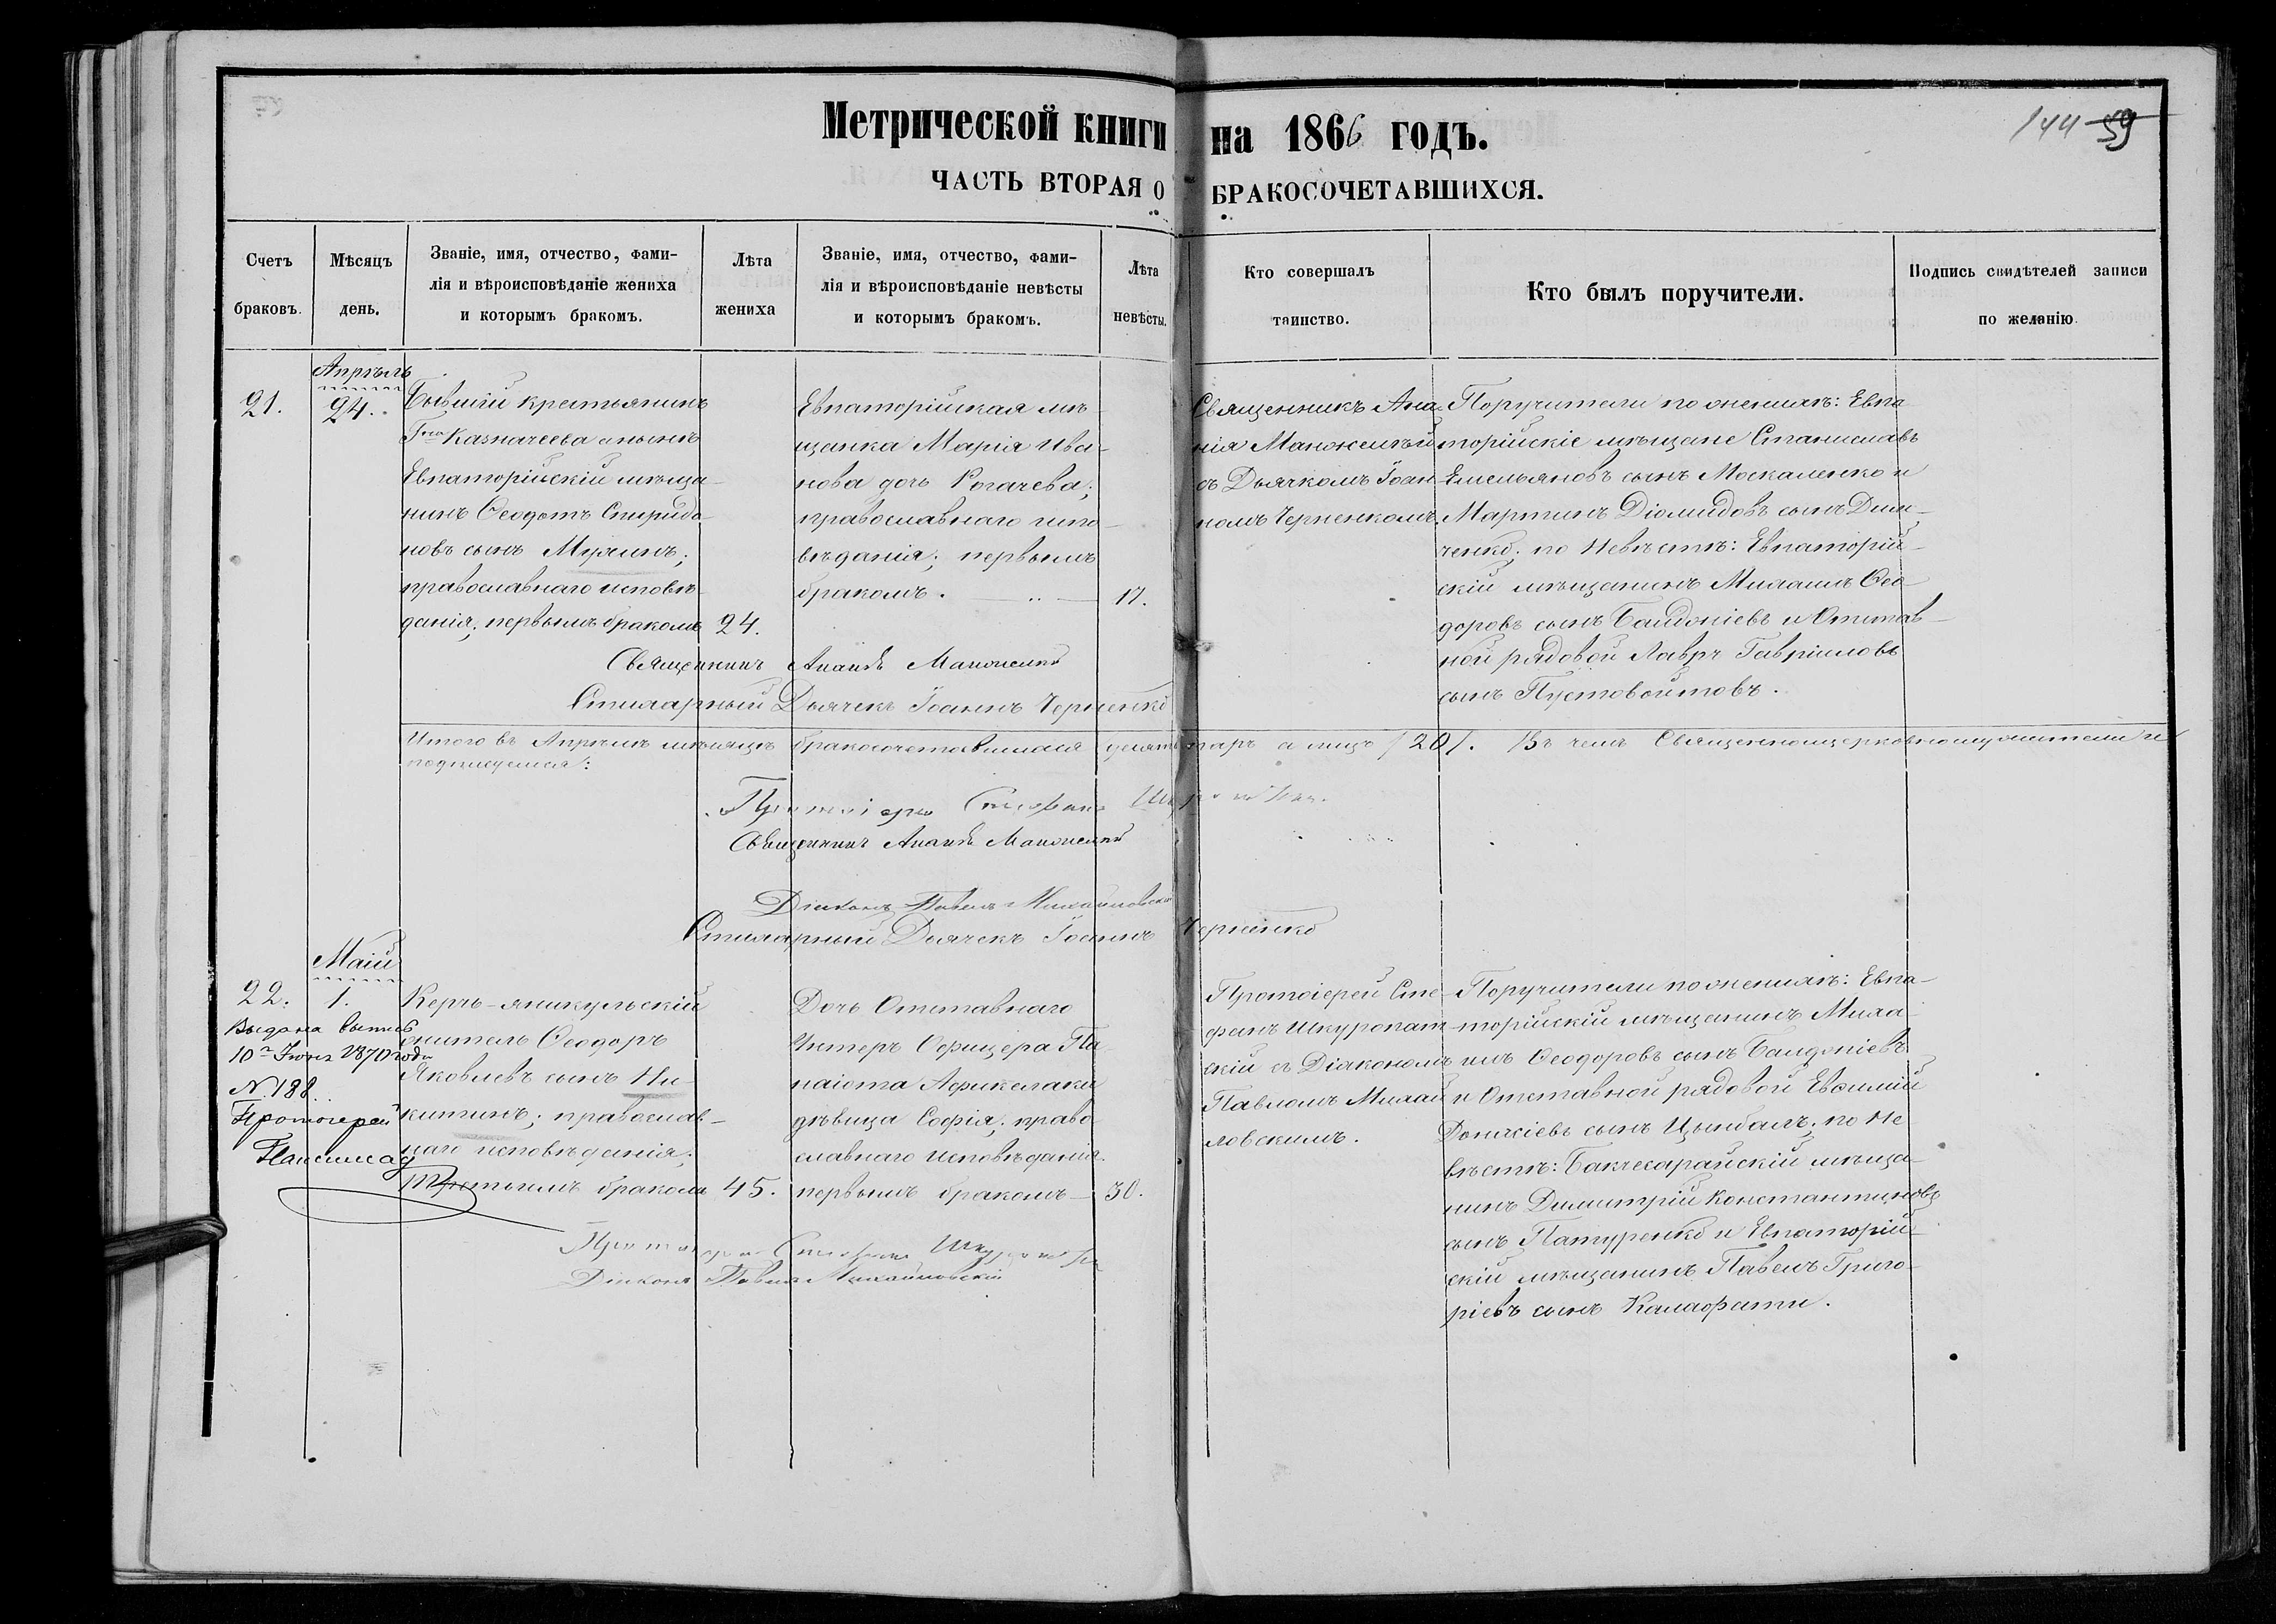 Метрической книги на 1866 годъ.
144 59
ЧАСТЬ ВТОРАЯ О БРАКОСОЧЕТАВШИХСЯ.
Счетъ
браковъ.
Мѣсяцъ
день.
Званіе, имя, отчество, фами-
лія и вѣроисповѣданіе жениха
и которымъ бракомъ.
Лѣта
жениха
Званіе, имя, отчество, фами-
лія и вѣроисповѣданіе невѣсты
и которымъ бракомъ.
Лѣта
невѣсты.
Кто совершалъ
таинство.
Кто былъ поручители.
Подпись свидѣтелей записи
по желанію
Апрѣль
21.
24.
Бывшій крестьянинъ
Гна Казначеева а нынѣ
Евпаторійскій мѣща-
нинъ Ѳеодотъ Спиридо-
новъ сынъ
православнаго исповѣ-
данія; первымъ бракомъ
24.
Евпаторійская мѣ-
щанка Марія Ива-
нова дочь Рогачева;
православнаго испо-
вѣданія; первымъ
бракомъ.
17.
Священникъ Ана-
нія
съ Дьячкомъ Іоан-
номъ Черненкомъ.
Поручители по женихѣ: Евпа-
торійскіе мѣщане Станиславъ
Емельяновъ сынъ Москаленко и
Мартинъ Діомидовъ сынъ Дим-
ченко; по Невѣстѣ: Евпаторій-
скій мѣщанинъ Михаилъ Ѳео-
доровъ сынъ и Отстав-
ной рядовой Лавръ Гавріиловъ
сынъ Пустовойтовъ.
Священникъ Ананія
Стихарный Дьячекъ Іоаннъ Черненко
Итого въ Апрѣлѣ мѣсяцѣ бракосочетавшихся десять паръ а лицъ /20/. Въ чемъ Священноцерковнослужители и
подписуемся:
Протоіерей Стефанъ
Священникъ Ананія
Діаконъ Павелъ Михайловскій
Стихарный Дьячекъ Іоаннъ Черненко
Маій
22.
1.
Выдана выпись
10го Іюня 1870 года
№ 188.
Протоіерей
Керчь-Яникульскій
житель Ѳеодоръ
Яковлевъ сынъ Ни-
китинъ; православ-
наго исповѣданія;
третьимъ бракомъ
45.
Дочь Отставнаго
Унтеръ Офицера Па-
наіота
дѣвица Софія; право-
славнаго исповѣданія
первымъ бракомъ
30.
Протоіерей Сте-
фанъ Шкуропат-
скій съ Діакономъ
Павломъ Михай-
ловскимъ.
Поручители по женихѣ: Евпа-
торійскій мѣщанинъ Миха-
илъ Ѳеодоровъ сынъ
и Отставной рядовой Евѳимій
сынъ Цымбалъ; по Не-
вѣстѣ: Бахчесарайскій мѣща-
нинъ Димитрій Константиновъ
сынъ Патуренко и Евпаторій-
скій мѣщанинъ Павелъ Григо-
ріевъ сынъ Калафати.
Протоіерей Стефанъ
Діаконъ Павелъ Михайловскій